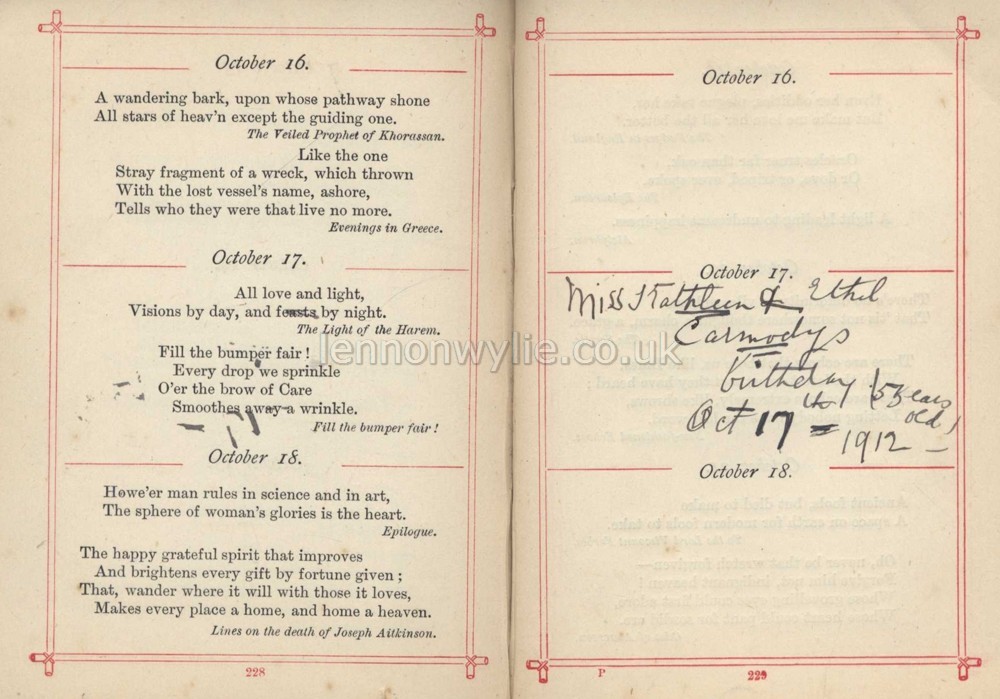 October 16.
A wandering bark, upon whose pathway shone
All stars of heav'n except the guiding one.
The Veiled Prophet of Khorassan.
Like the one
Stray fragment of a wreck, which thrown
With the lost vessel's name, ashore,
Tells who they were that live no more.
Evenings in Greece.
October 17.
All love and light,
Visions by day, and feasts by night.
The Light of the Harem.
Fill the bumper fair!
Every drop we sprinkle
O'er the brow of Care
Smoothes away a wrinkle.
Fill the bumper fair!
October 18.
Howe'er man rules in science and in art,
The sphere of woman's glories is the heart.
Epilogue.
The happy grateful spirit that improves
And brightens every gift by fortune given;
That, wander where it will with those it loves,
Makes every place a home, and home a heaven.
Lines on the death of Joseph Aitkinson.
228
October 16.
October 17.
Miss Kathleen & Ethel
Carmodys
birthday (5 years
old)
Oct 17th = 1912 –
October 18.
P
229
lennonwylie.co.uk